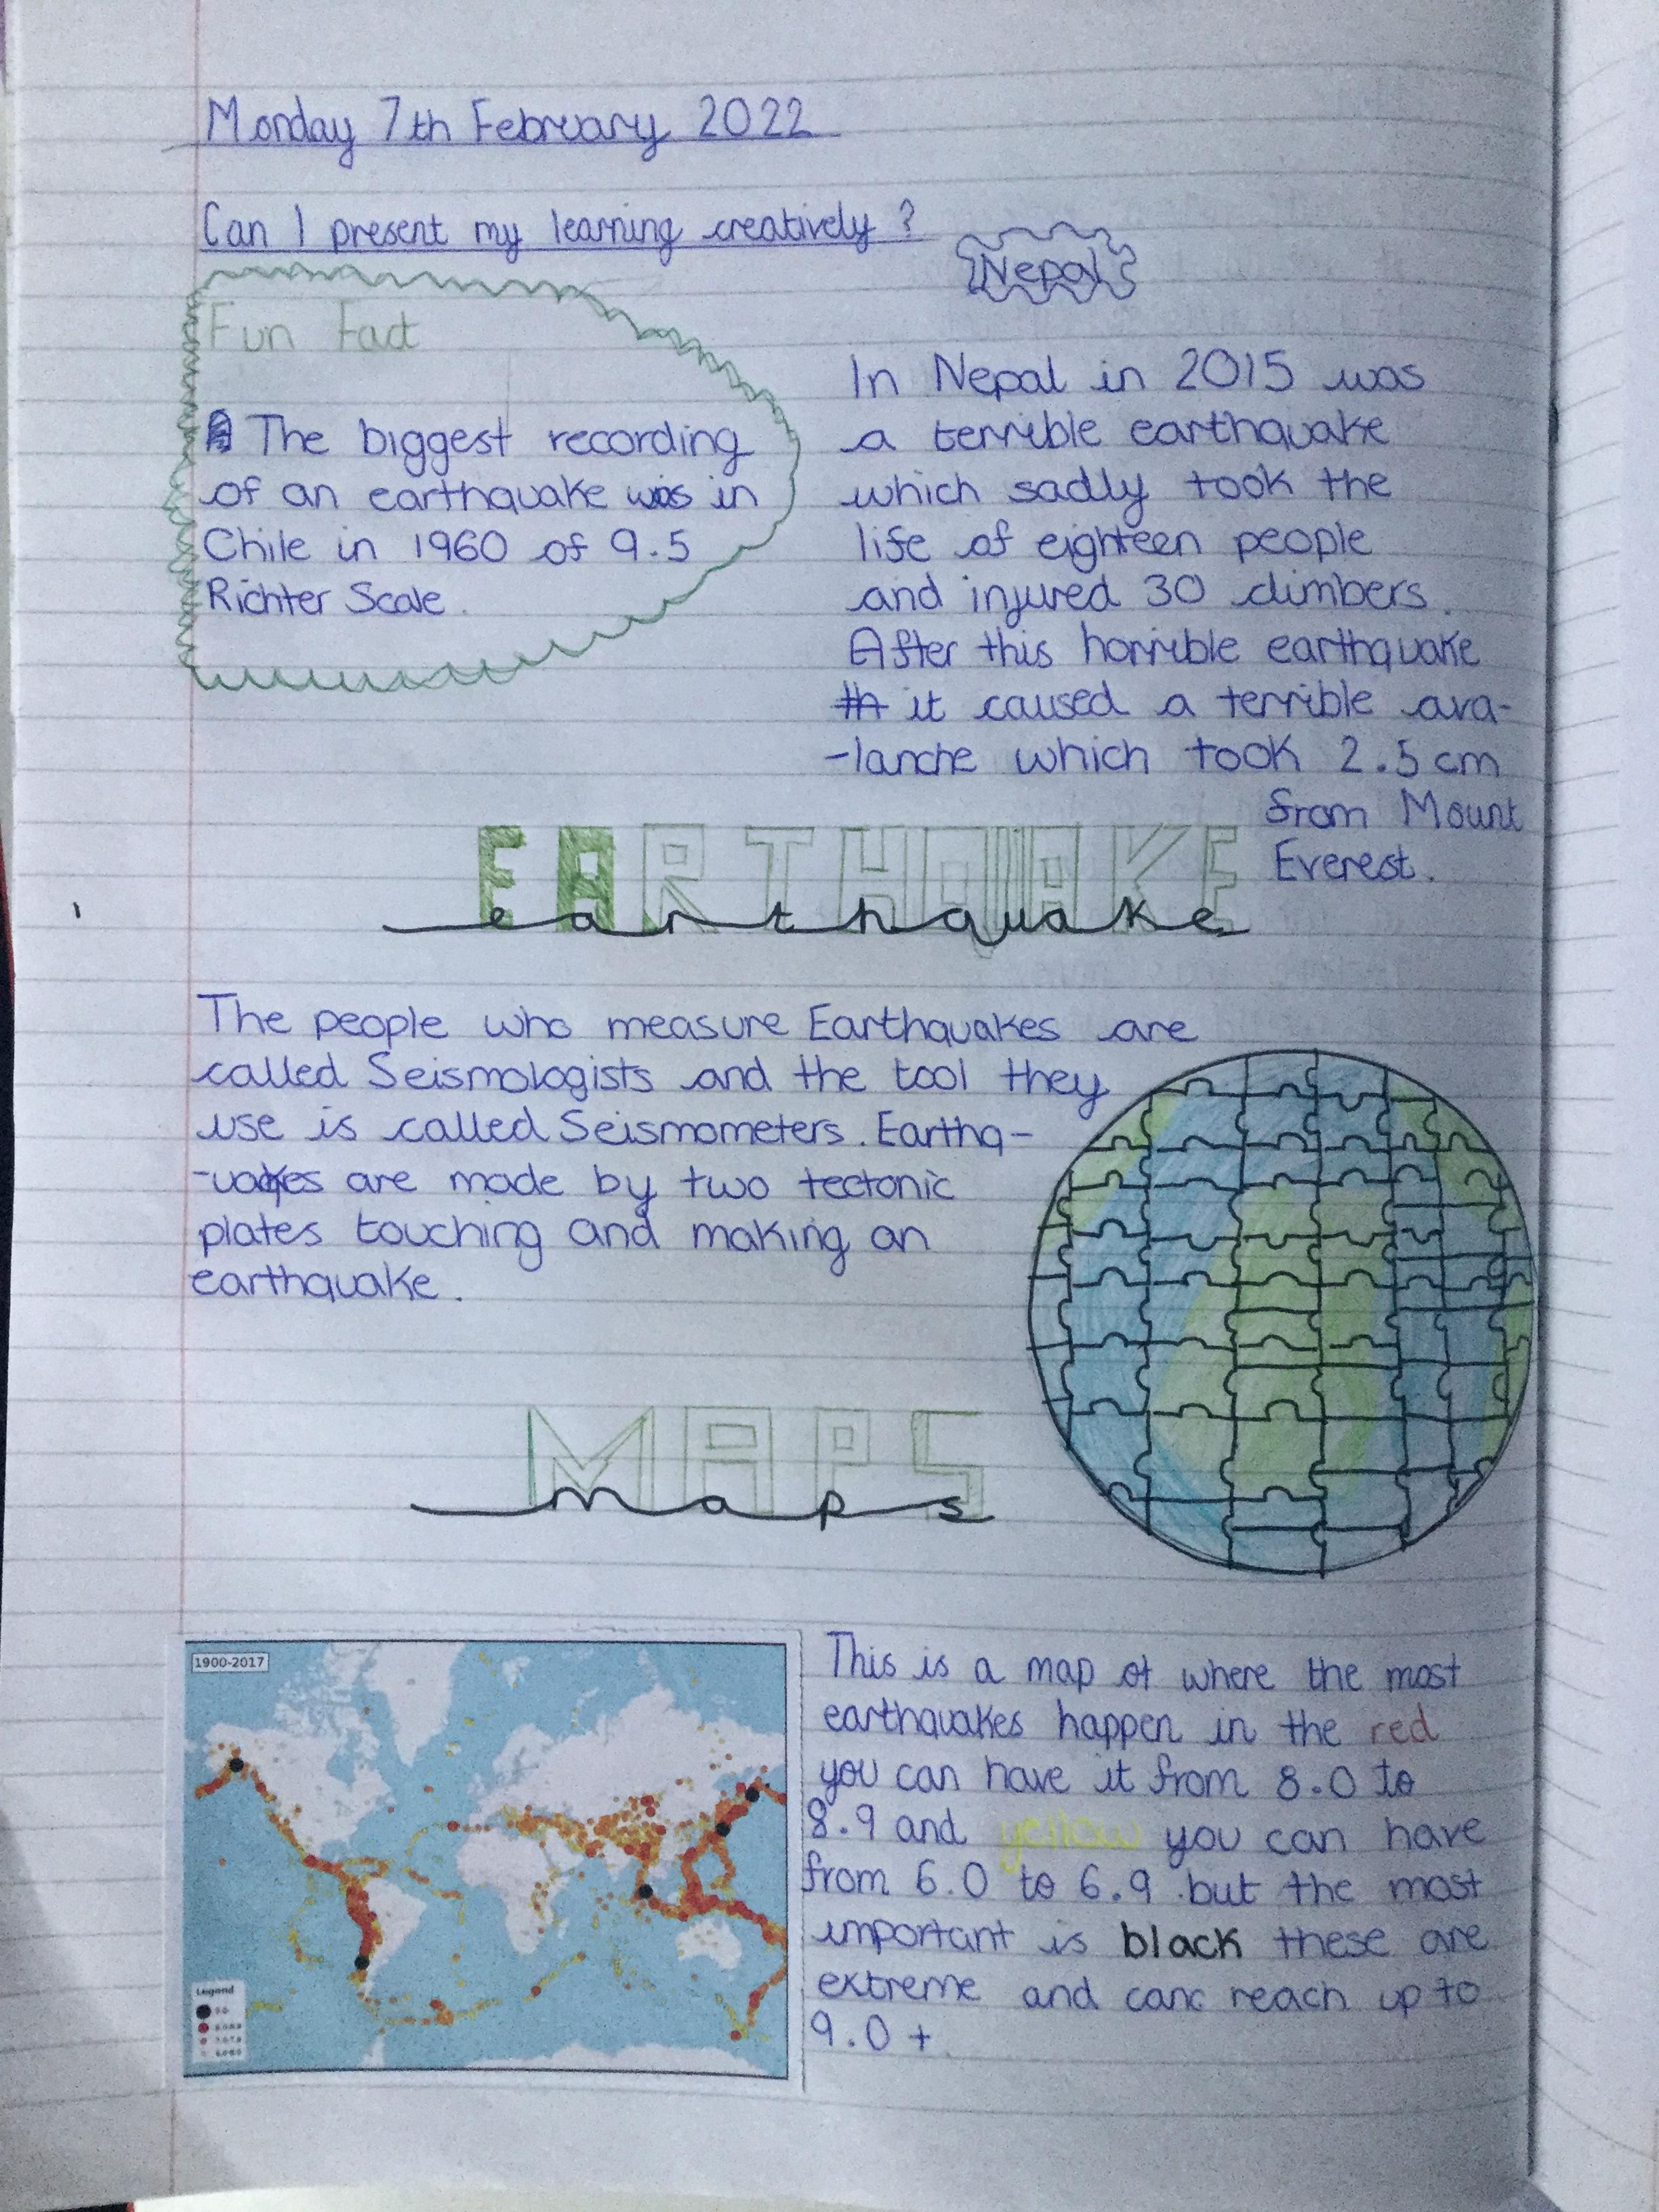 Monday 7th February 2022
Can I present my learning creatively?
Nepal
Fun Fact
The biggest recording
of an earthquake was in
Chile in 1960 of 9.5
Richter Scale.
In Nepal in 2015 was
a terrible earthquake
which sadly took the
life of eighteen people
and injured 30 climbers.
After this horrible earthquake
it caused a terrible ava-
-lanche which took 2.5cm
from Mount
Everest.
EARTHQUAKE
earthquake
The people who measure Earthquakes are
called Seismologists and the tool they
use is called Seismometers. Earthq-
-uakes are made by two tectonic
plates touching and making an
earthquake.
MAPS
maps
1900-2017
Legend
This is a map of where the most
earthquakes happen in the red
you can have it from 8.0 to
8.9 and yellow you can have
from 6.0 to 6.9 but the most
important is black these are
extreme and canc reach up to
9.0+